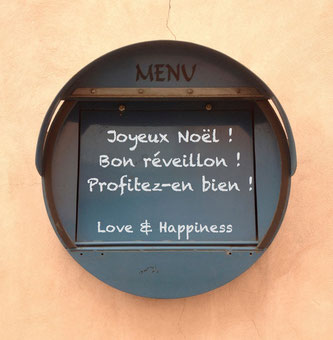 MENU
Joyeux Noël !
Bon réveillon !
Profitez-en bien !
Love & Happiness